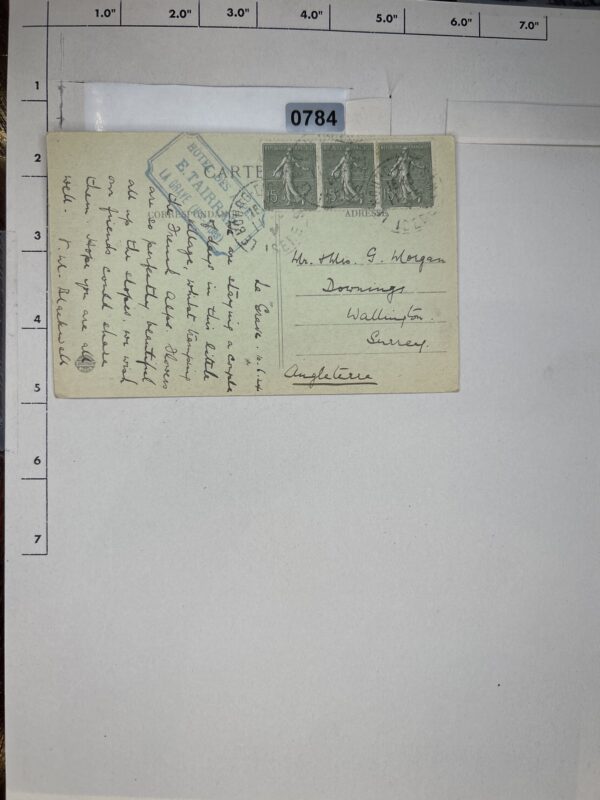 1.0" 2.0" 3.0" 4.0" 5.0" 6.0" 7.0"
1
2
3
4
5
6
7
0784
CARTE
CORRESPONDANCE
ADRESSE
HOTEL DES
E. TAIRRAZ
LA GRAVE
15
Mr. & Mrs. G. Morgan
Downings
Wallington.
Surrey.
Angleterre
La Grave.
We are staying a couple
of days in this little
village, whilst tramping
the French Alps. Flowers
are so perfectly beautiful
all up the slopes, we wish
our friends could share
them. Hope you are all
well.